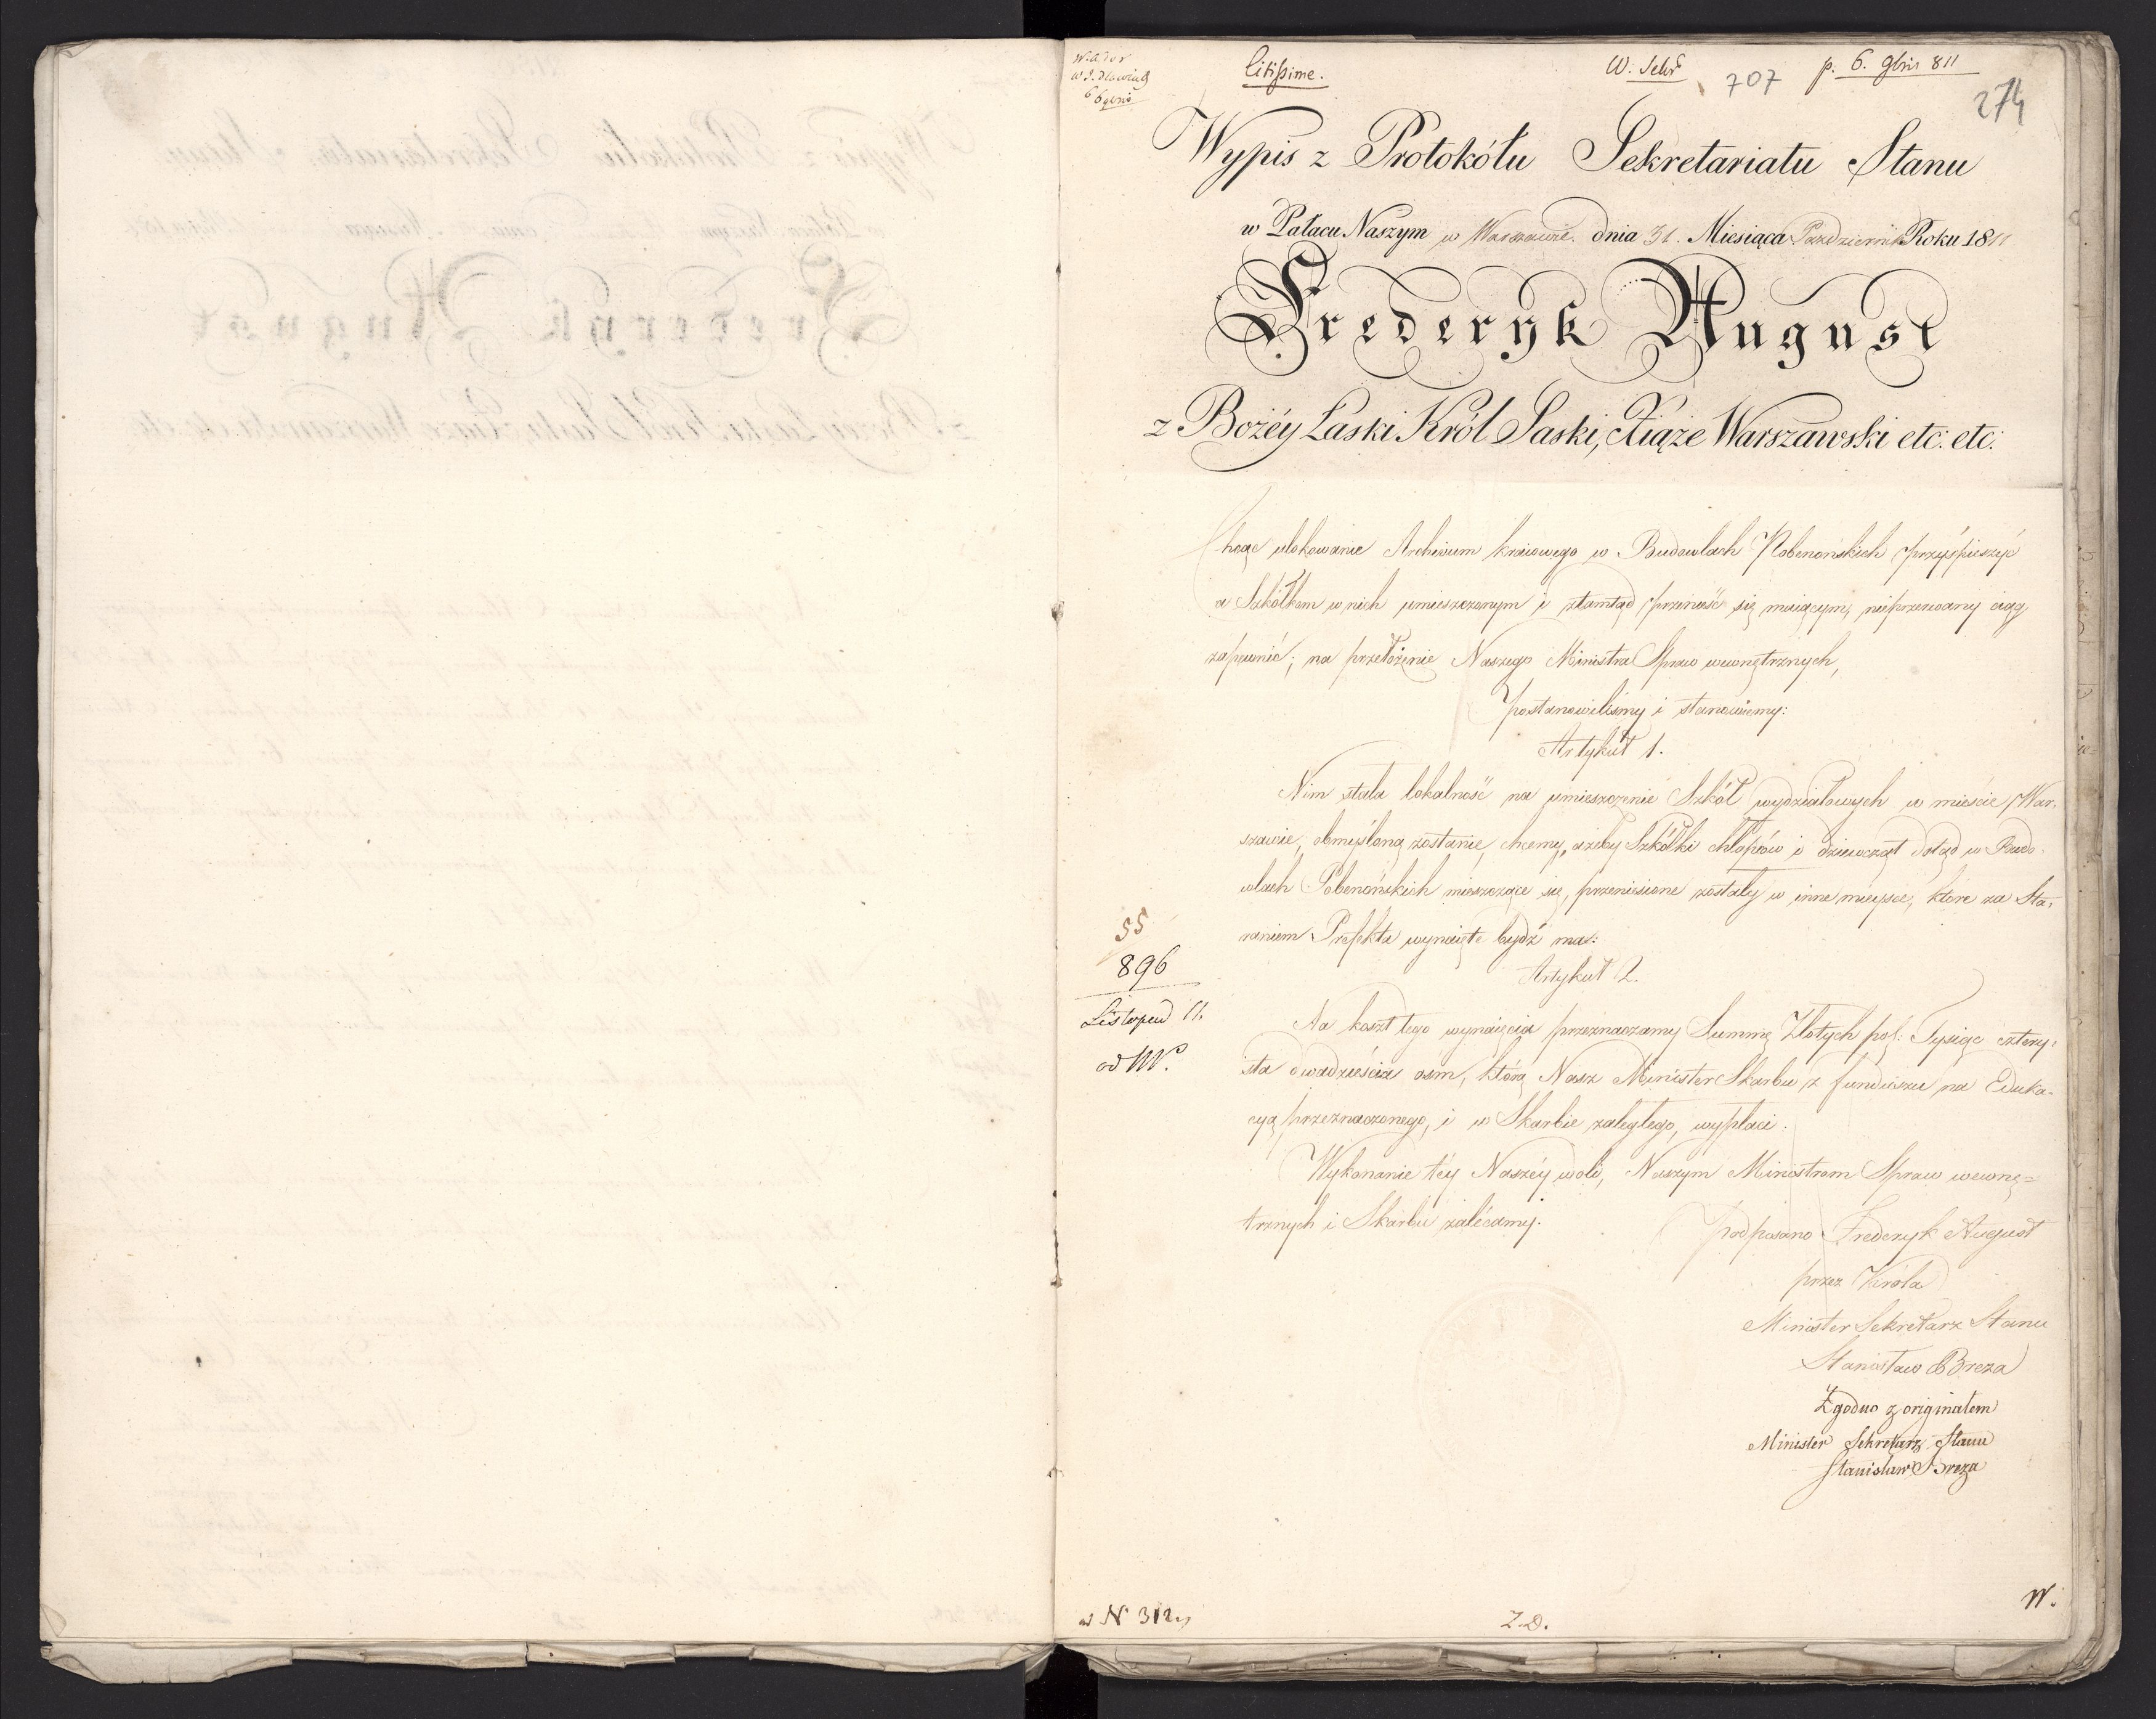 Citissime.
W. Sekr
707
p. 6. 9bris 811
274
Wypis z Protokółu Sekretariatu Stanu
w Pałacu Naszym w Warszawie. dnia 31. Miesiąca Październik Roku 1811
Frederyk August
z Bożéy Łaski Król Saski, Xiąże Warszawski etc: etc:
Chcąc ulokowanie Archivum kraiowego w Budowlach Pobenońskich przyśpieszyć
a Szkółkom w nich umieszczonym i ztamtąd przenieść się maiącym, nieprzerwany ciąg
zapewnić; na przełożenie Naszego Ministra Spraw wewnętrznych,
postanowiliśmy i stanowiemy:
Artykuł 1.
Nim stała lokalność na umieszczenie Szkół wydziałowych w mieście War-
szawie, obmyśloną zostanie, chcemy, ażeby Szkółki chłopców i dziewcząt dotąd w Budo-
wlach Pobenońskich mieszczące się, przeniesione zostały w inne mieysce, które za Sta-
raniem Prefekta wynaięte bydź ma:
Artykuł 2.
Na koszt tego wynaięcia przeznaczamy Summę Złotych pol: Tysiąc cztery-
sta dwadzieścia osm, którą Nasz Minister Skarbu z funduszu na Eduka-
cyą przeznaczonego, i w Skarbie zaległego, wypłaci.
Wykonanie téy Naszéy woli, Naszym Ministrom Spraw wewnę=
trznych i Skarbu zalécamy.
podpisano Frederyk August
przez Króla
Minister Sekretarz Stanu
Stanisław Breza
Zgodno z originałem
Minister Sekretarz Stanu
Stanisław Breza
55
896
Listopad 11.
od W.
w N 312
Z.D.
W.